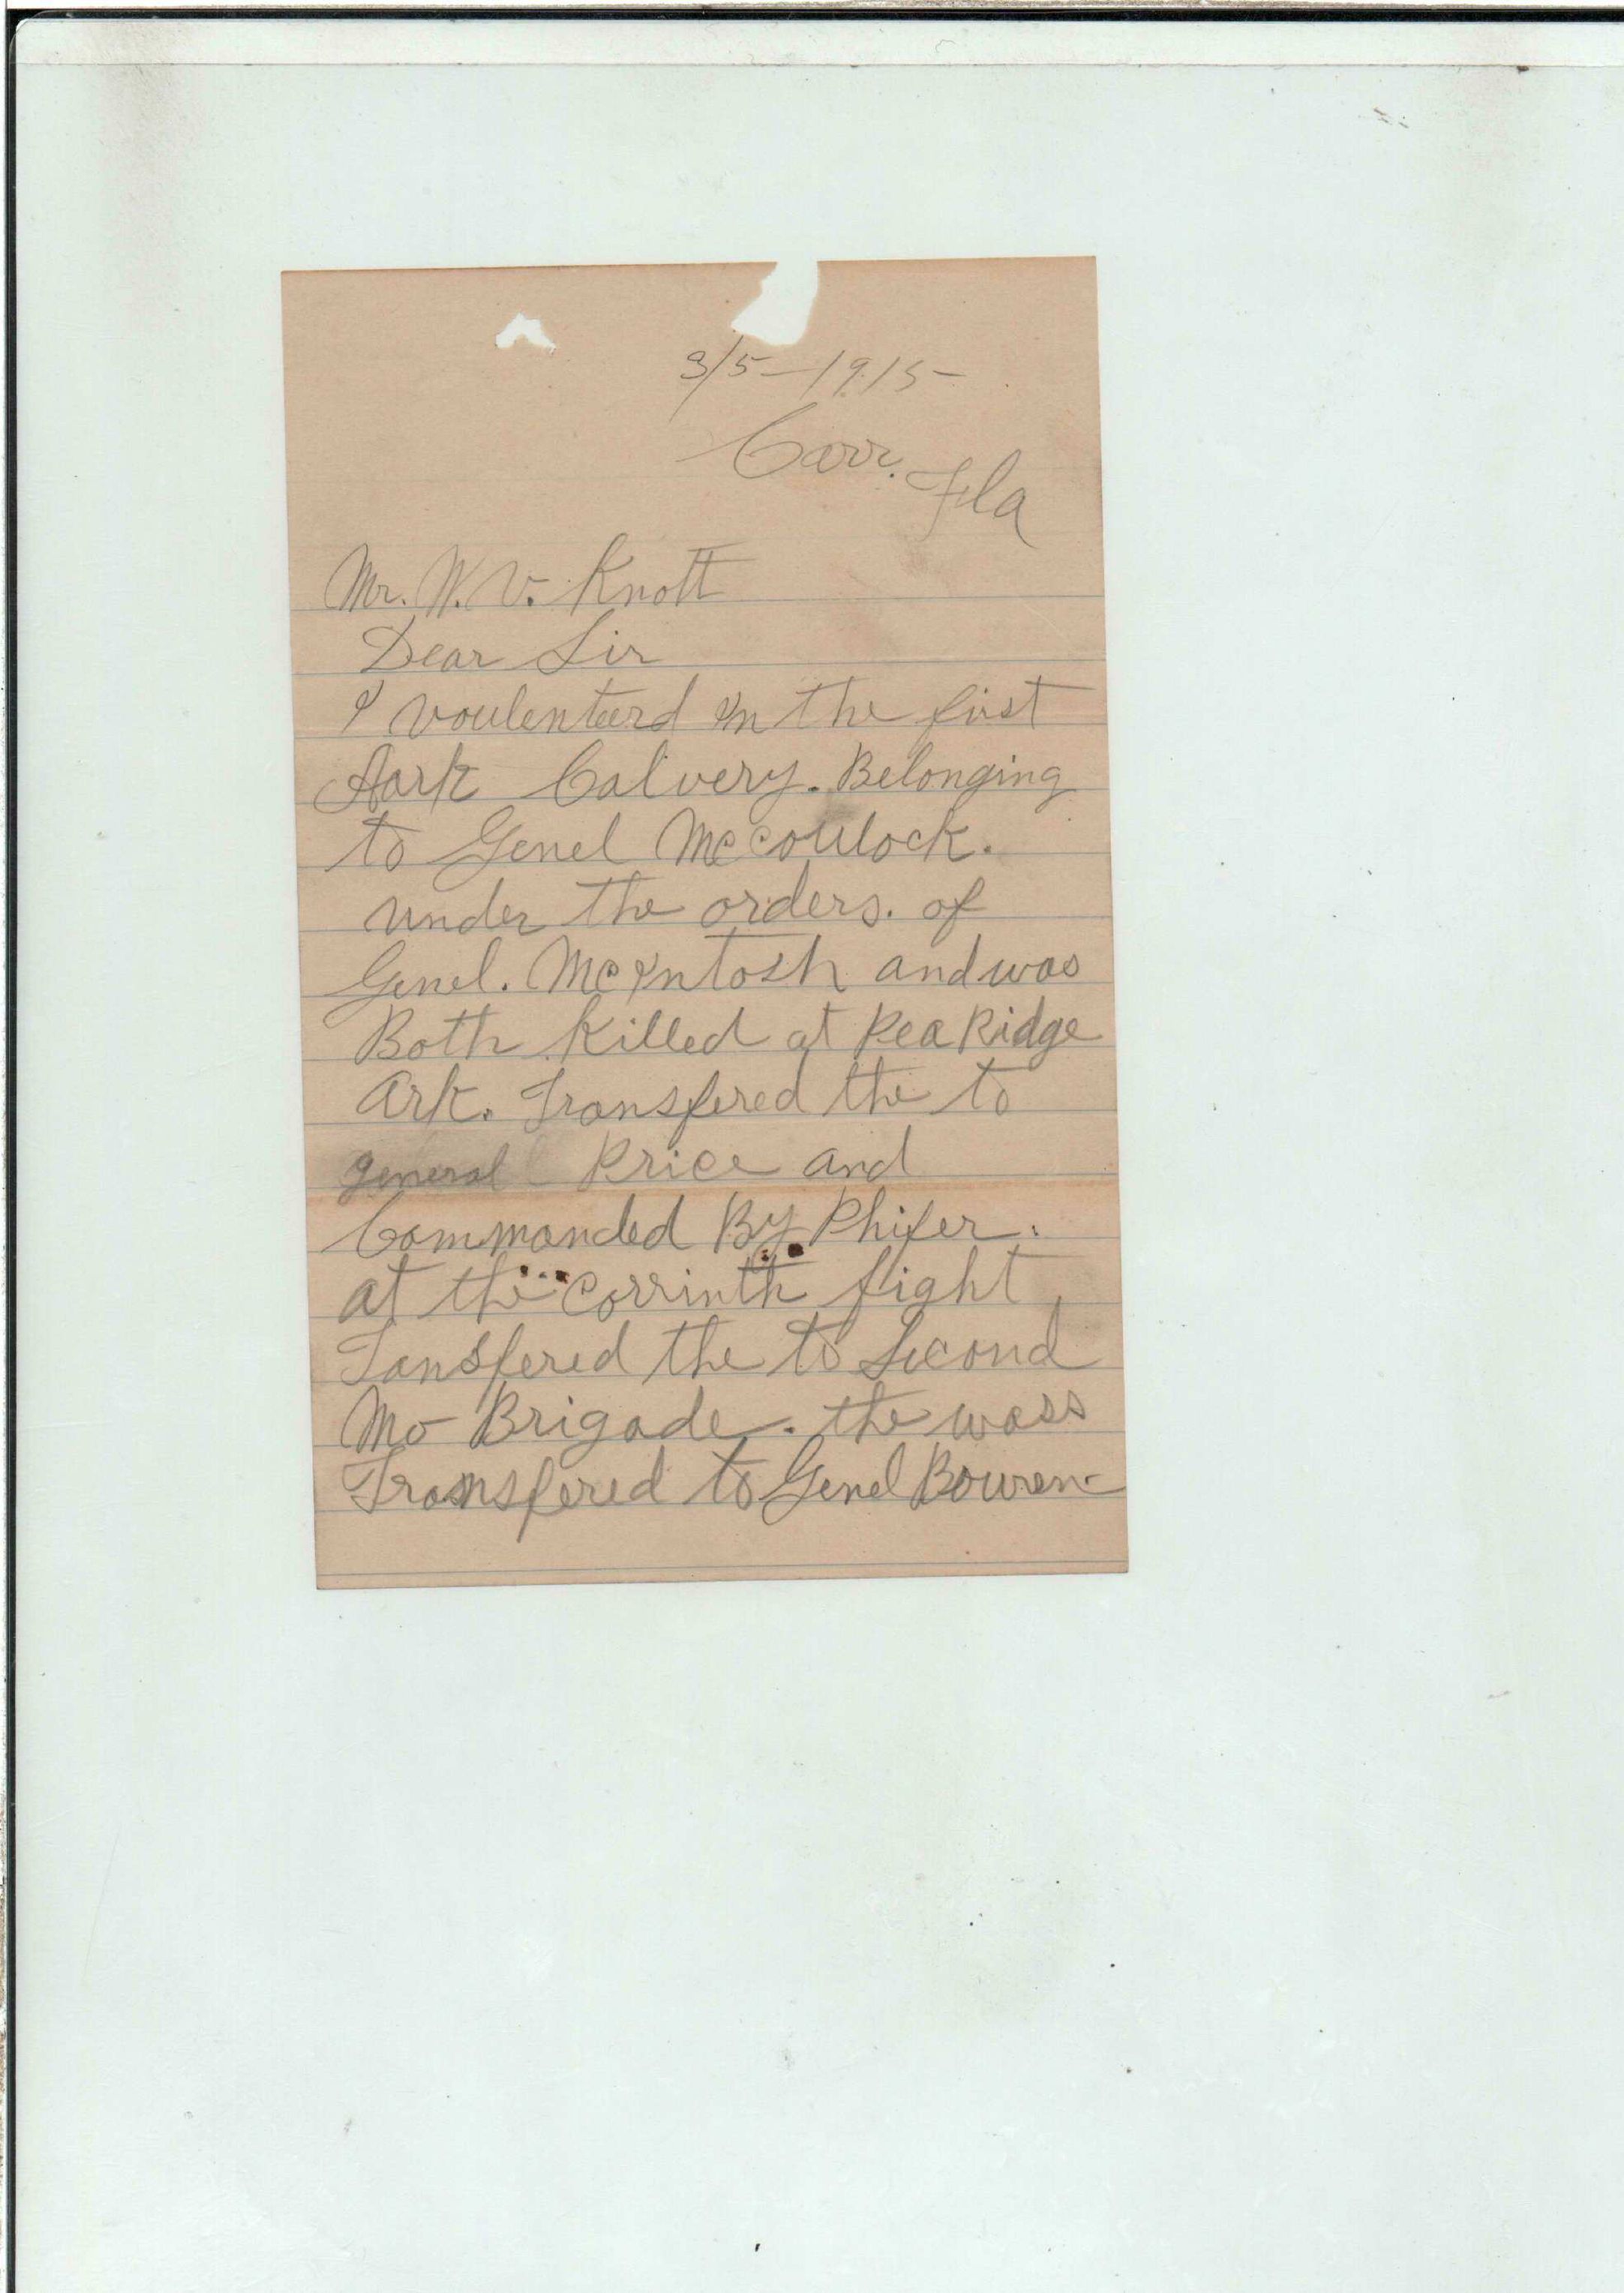 3/5-1915-
Carr. Fla
Mr. W. V. Knott
Dear Sir
I voulenteerd in the first
Aark Calvery. Belonging
to Genel Mccoulock.
under the orders. of
Genel. McIntosh and was
Both Killed at Pea Ridge
Ark. Transfered the to
general Price and
Commanded By Phifer.
at the Corrinth fight
Tansfered the to Second
Mo Brigade. the wass
Transfered to Genel Bowren